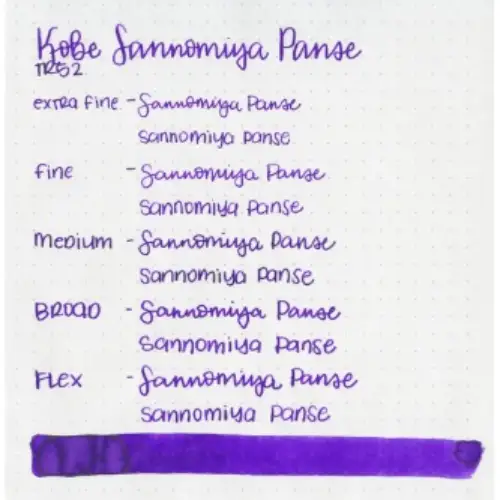 Kobe Sannomiya Panse
no52
extra fine - Sannomiya Panse
Sannomiya Panse
fine - Sannomiya Panse
Sannomiya Panse
medium - Sannomiya Panse
Sannomiya Panse
BROAD - Sannomiya Panse
Sannomiya Panse
FLEX - Sannomiya Panse
Sannomiya Panse